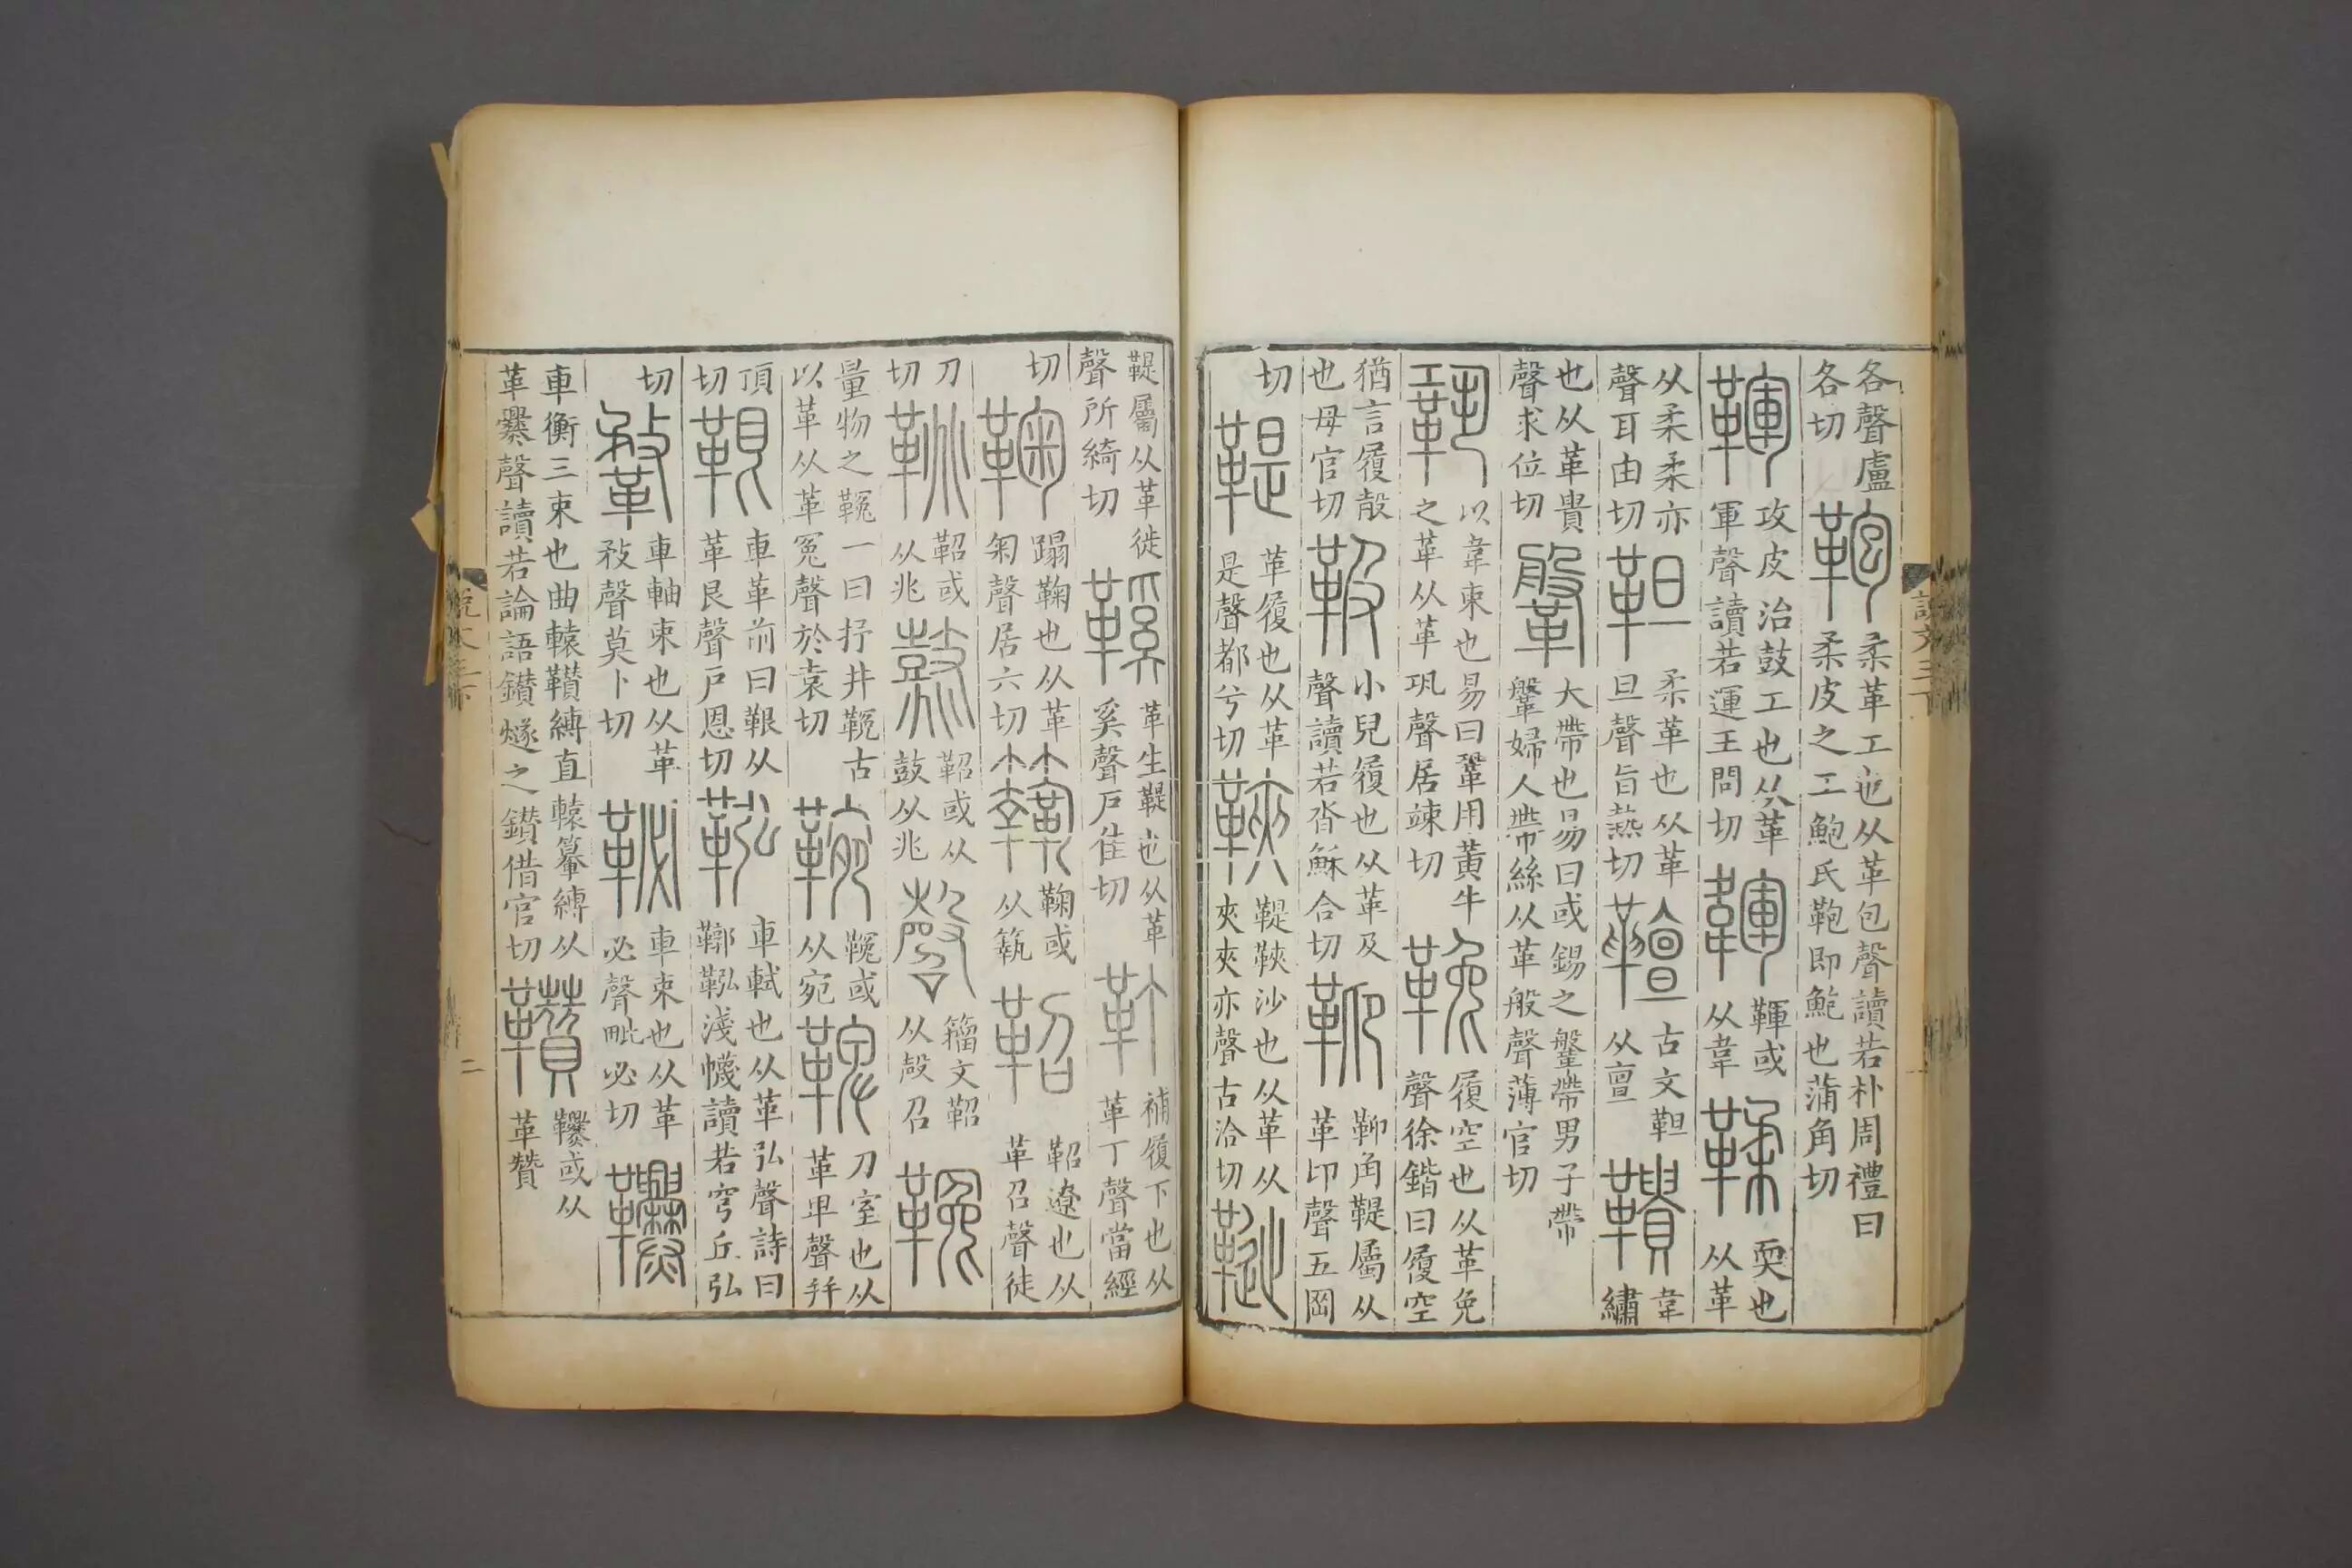 各聲盧各切 鞄 柔革工也从革包聲讀若朴周禮曰柔皮之工鮑氏鞄即鮑也蒲角切
鞾 攻皮治鼓工也从革軍聲讀若運王問切 韗 鞾或从韋 鞣 耎也从革
从柔柔亦聲耳由切 靼 柔革也从革旦聲旨熱切 古文靼从亶 鞼 韋繡
也从革貴聲求位切 鞶 大帶也易曰或錫之鞶帶男子帶鞶婦人帶絲从革般聲薄官切
鞏 以韋束也易曰鞏用黃牛之革从革巩聲居竦切 鞔 履空也从革免聲徐鍇曰履空
猶言履殻也母官切 靸 小兒履也从革及聲讀若沓穌合切 䩕 䩕角鞮屬从革卬聲五岡
切 鞮 革履也从革是聲都兮切 䩡 鞮䩡沙也从革从夾夾亦聲古洽切
鞮屬从革徙聲所綺切 鞵 革生鞮也从革奚聲戶佳切 靪 補履下也从革丁聲當經
切 鞠 蹋鞠也从革匊聲居六切 鞠或从 鞀 鞀遼也从革召聲徒
刀切 鞉 鞀或从兆 鼗 鞀或从鼓从兆 磬 籀文鞀从殸召
量物之 一曰抒井 古以革从革冤聲於袁切 或从宛 鞞 刀室也从革卑聲幷
頂切 鞎 車革前曰鞎从革艮聲戶恩切 鞃 車軾也从革弘聲詩曰鞹鞃淺幭讀若穹丘弘
切 鞪 車軸束也从革敄聲莫卜切 䩛 車束也从革必聲毗必切
車衡三束也曲轅 縛直轅 縛从革爨聲讀若論語鑽燧之鑽借官切 或从革贊
說文三下
二